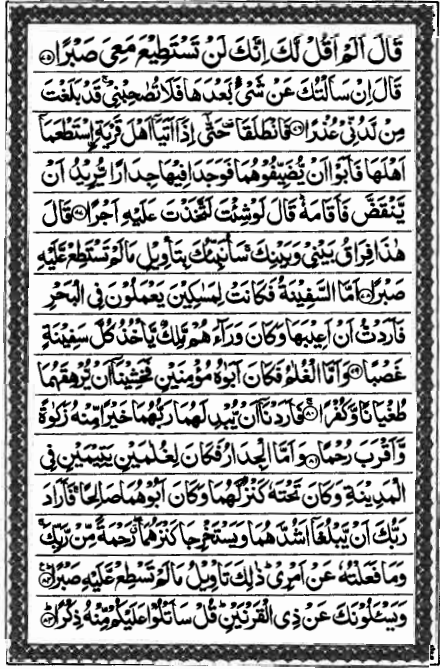 قَالَ اَلَمْ اَقُلْ لَّكَ اِنَّكَ لَنْ تَسْتَطِيْعَ مَعِيَ صَبْرًا ﴿۷۵﴾
قَالَ اِنْ سَاَلْتُكَ عَنْ شَيْءٍۭ بَعْدَهَا فَلَا تُصٰحِبْنِيْ ۚ قَدْ بَلَغْتَ
مِنْ لَّدُنِّيْ عُذْرًا ﴿۷۶﴾ فَانْطَلَقَا ۥ حَتّٰۤي اِذَاۤ اَتَيَاۤ اَهْلَ قَرْيَةِ ۨاسْتَطْعَمَاۤ
اَهْلَهَا فَاَبَوْا اَنْ يُّضَيِّفُوْهُمَا فَوَجَدَا فِيْهَا جِدَارًا يُّرِيْدُ اَنْ
يَّنْقَضَّ فَاَقَامَهٗ ؕ قَالَ لَوْ شِئْتَ لَتَّخَذْتَ عَلَيْهِ اَجْرًا ﴿۷۷﴾ قَالَ
هٰذَا فِرَاقُ بَيْنِيْ وَبَيْنِكَ ۚ سَاُنَبِّئُكَ بِتَاْوِيْلِ مَا لَمْ تَسْتَطِعْ عَّلَيْهِ
صَبْرًا ﴿۷۸﴾ اَمَّا السَّفِيْنَةُ فَكَانَتْ لِمَسٰكِيْنَ يَعْمَلُوْنَ فِي الْبَحْرِ
فَاَرَدْتُّ اَنْ اَعِيْبَهَا وَكَانَ وَرَآءَهُمْ مَّلِكٌ يَّاْخُذُ كُلَّ سَفِيْنَةٍ
غَصْبًا ﴿۷۹﴾ وَاَمَّا الْغُلٰمُ فَكَانَ اَبَوٰهُ مُؤْمِنَيْنِ فَخَشِيْنَاۤ اَنْ يُّرْهِقَهُمَا
طُغْيَانًا وَّكُفْرًا ﴿۸۰﴾ فَاَرَدْنَاۤ اَنْ يُّبْدِلَهُمَا رَبُّهُمَا خَيْرًا مِّنْهُ زَكٰوةً
وَّاَقْرَبَ رُحْمًا ﴿۸۱﴾ وَاَمَّا الْجِدَارُ فَكَانَ لِغُلٰمَيْنِ يَتِيْمَيْنِ فِي
الْمَدِيْنَةِ وَكَانَ تَحْتَهٗ كَنْزٌ لَّهُمَا وَكَانَ اَبُوْهُمَا صَالِحًا ۚ فَاَرَادَ
رَبُّكَ اَنْ يَّبْلُغَاۤ اَشُدَّهُمَا وَيَسْتَخْرِجَا كَنْزَهُمَا ۖ رَحْمَةً مِّنْ رَّبِّكَ ۚ
وَمَا فَعَلْتُهٗ عَنْ اَمْرِيْ ؕ ذٰلِكَ تَاْوِيْلُ مَا لَمْ تَسْطِعْ عَّلَيْهِ صَبْرًا ﴿۸۲﴾
وَيَسْـَٔلُوْنَكَ عَنْ ذِي الْقَرْنَيْنِ ؕ قُلْ سَاَتْلُوْا عَلَيْكُمْ مِّنْهُ ذِكْرًا ﴿۸۳﴾